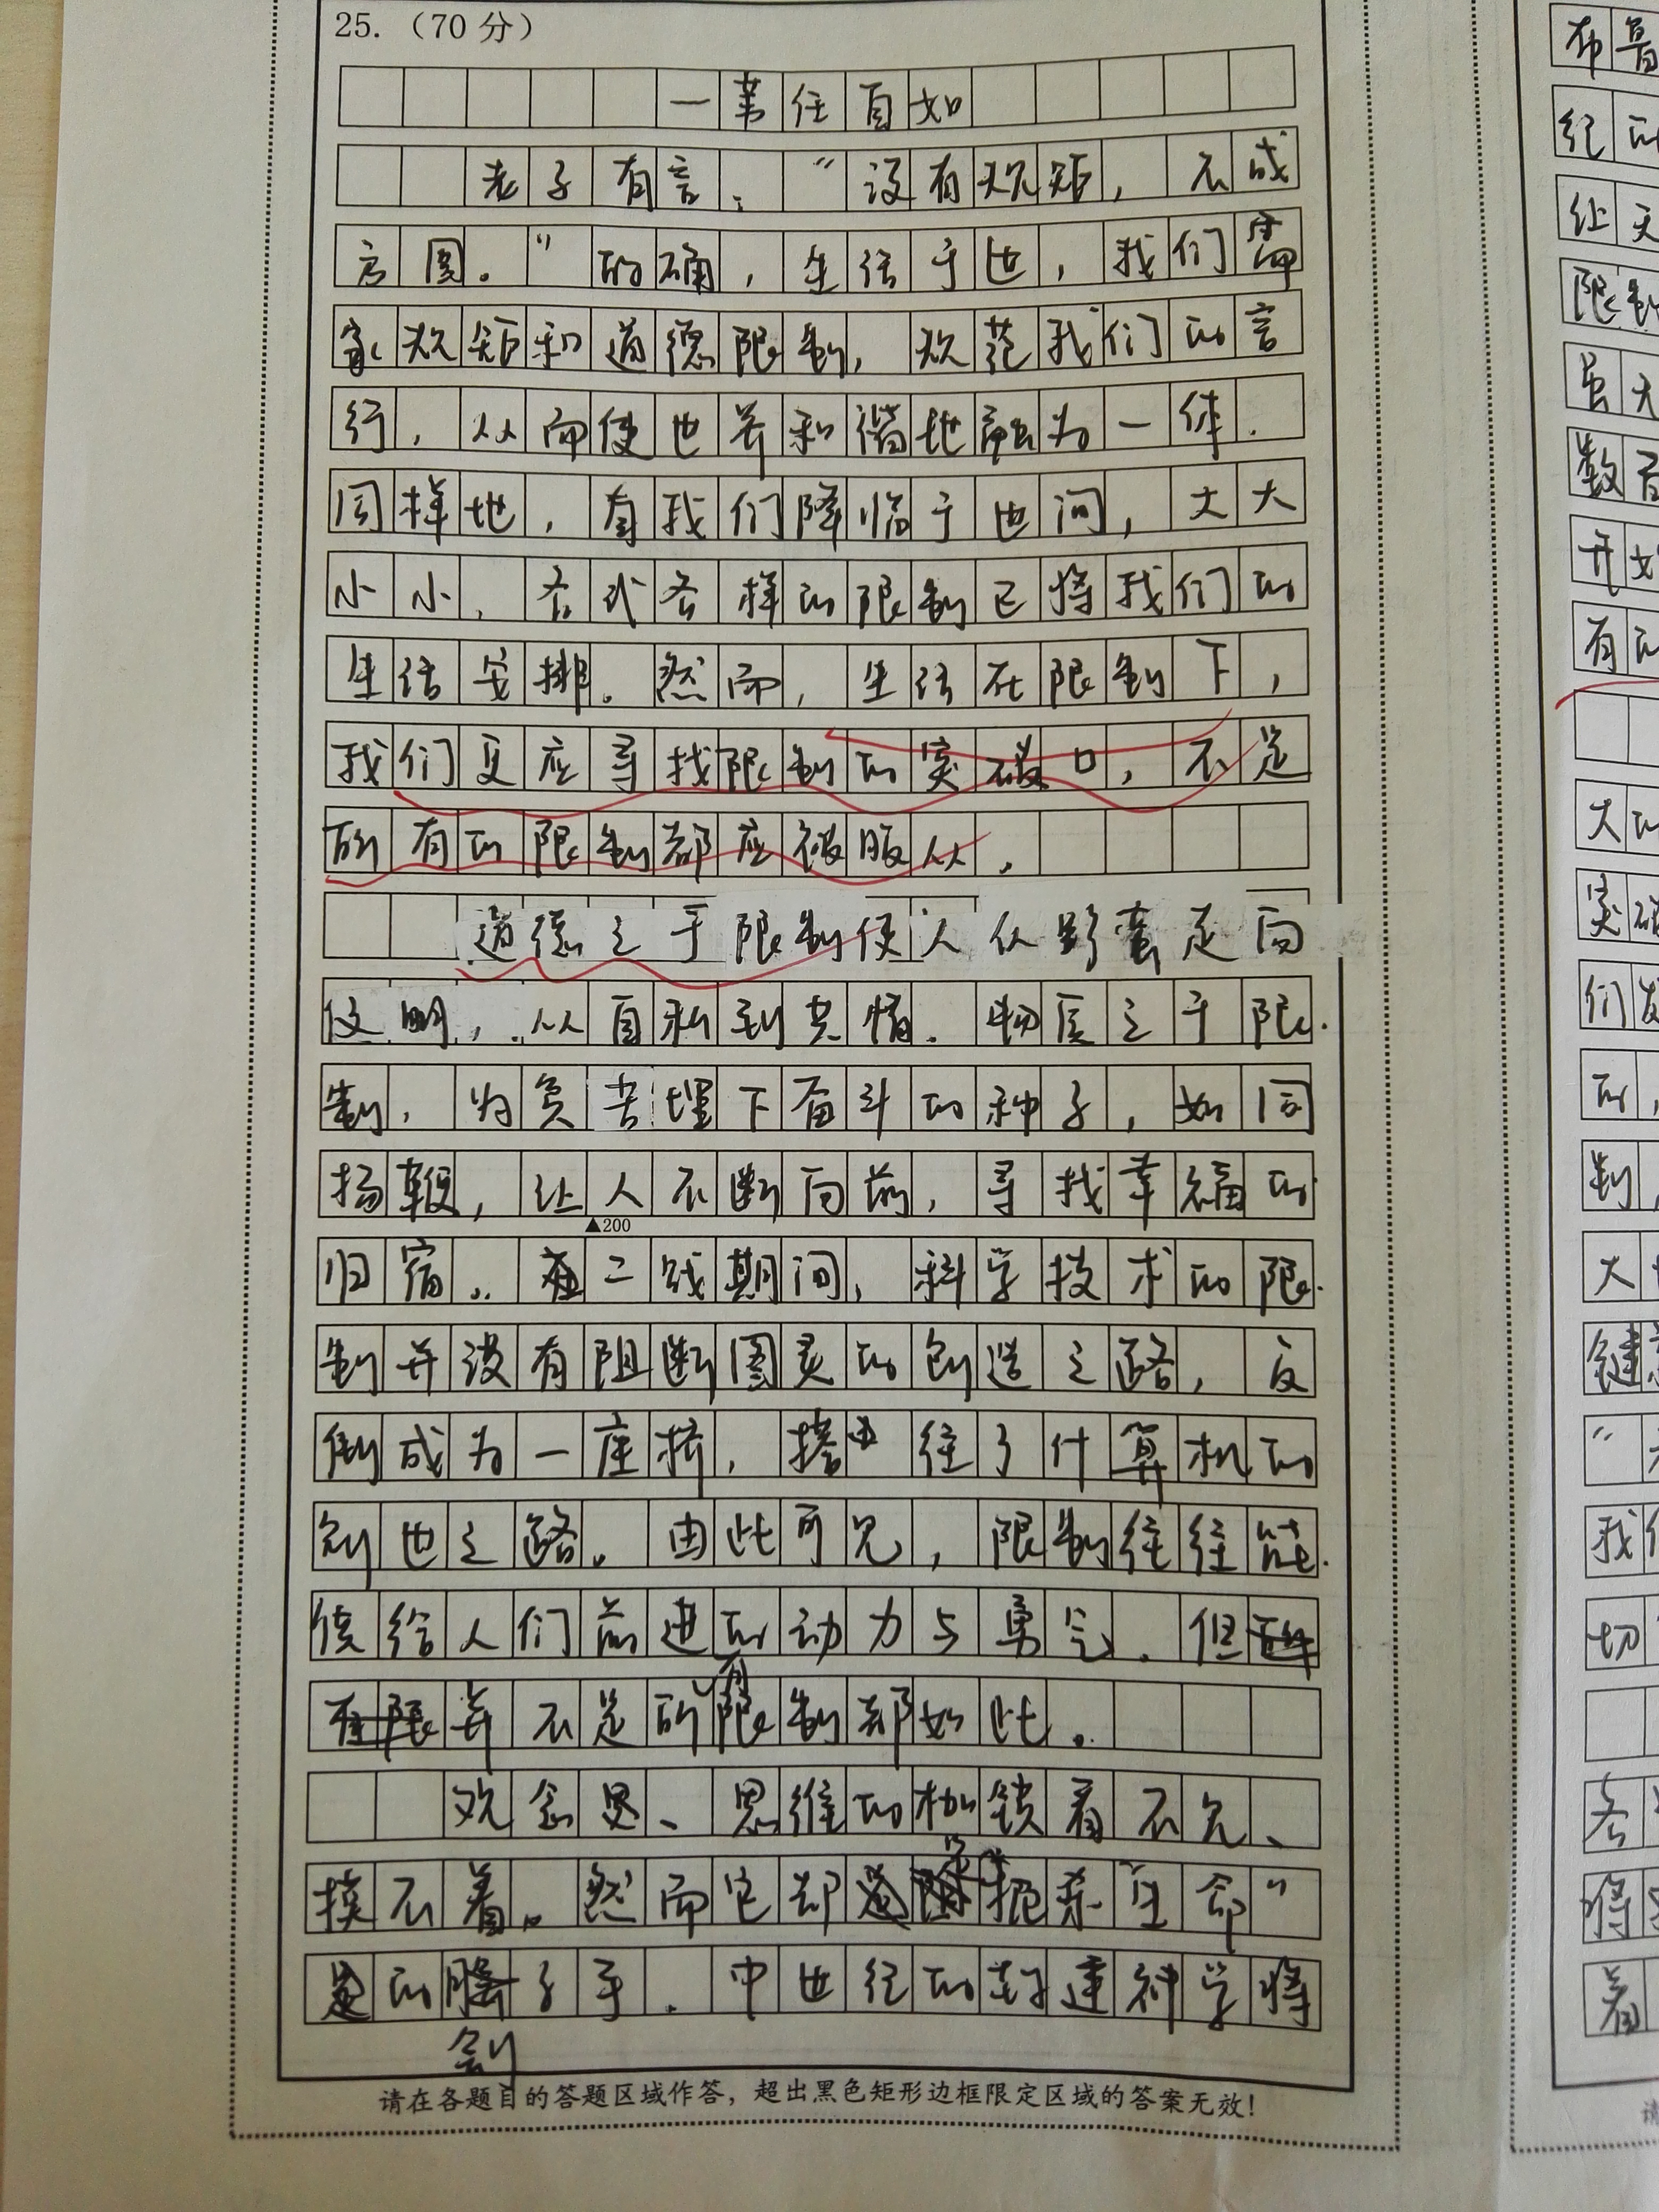 25.（70分）
一苇任自如
老子有言："没有规矩，不成
方圆。"的确，生活于世，我们需
家规矩和道德限制，规范我们的言
行，从而使世界和谐地融为一体.
同样地，自我们降临于世间，大大
小小、各式各样的限制已将我们的
生活安排。然而，生活在限制下，
我们更应寻找限制的突破口，不是
所有的限制都应被服从.
道德之于限制使人从野蛮走向
文明，从自私到共情.物质之于限
制，为贫苦埋下奋斗的种子，如同
扬鞭，让人不断向前，寻找幸福的
▲200
归宿。在二战期间，科学技术的限
制并没有阻断图灵的创造之路，反
倒成为一座桥，搭 往了计算机的
创世之路。由此可见，限制往往能
使给人们前进的动力与勇气.但
并不是所有限制都如此。
观念思、思维的枷锁看不见、
摸不着。然而它却是 扼杀生命"
的刽子手.中世纪的封建神学将
请在各题目的答题区域作答，超出黑色矩形边框限定区域的答案无效！
布鲁
纪的
让天
限制
虽大
数君
开始
有的
大的
突破
们发
的，
制，
大
键
我们
切
各
将
着